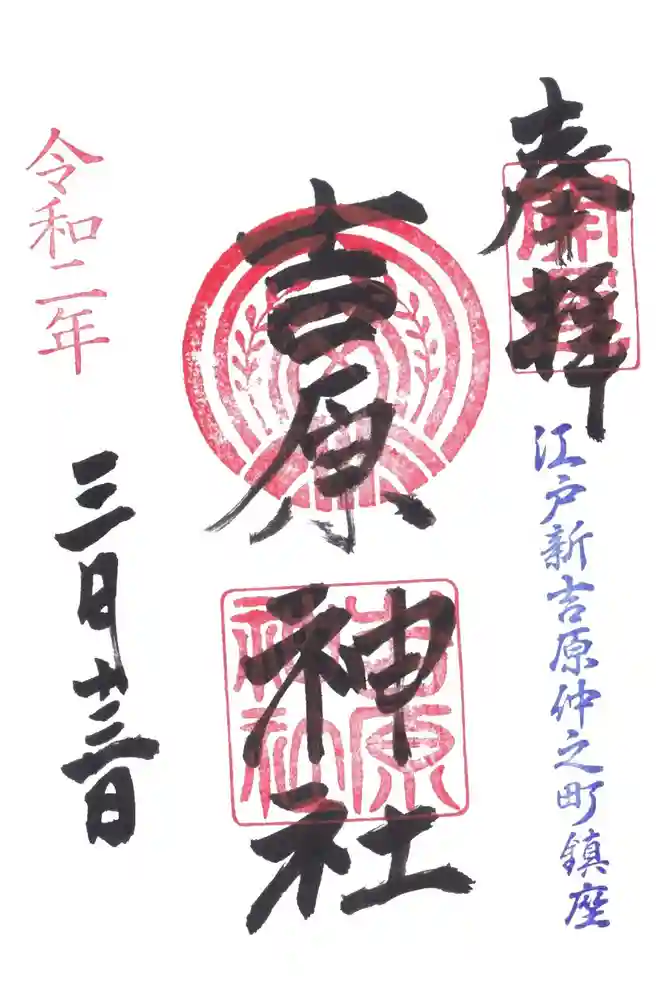 奉拝
江戸新吉原仲之町鎮座
吉原神社
吉原
神社
令和二年
三月十三日